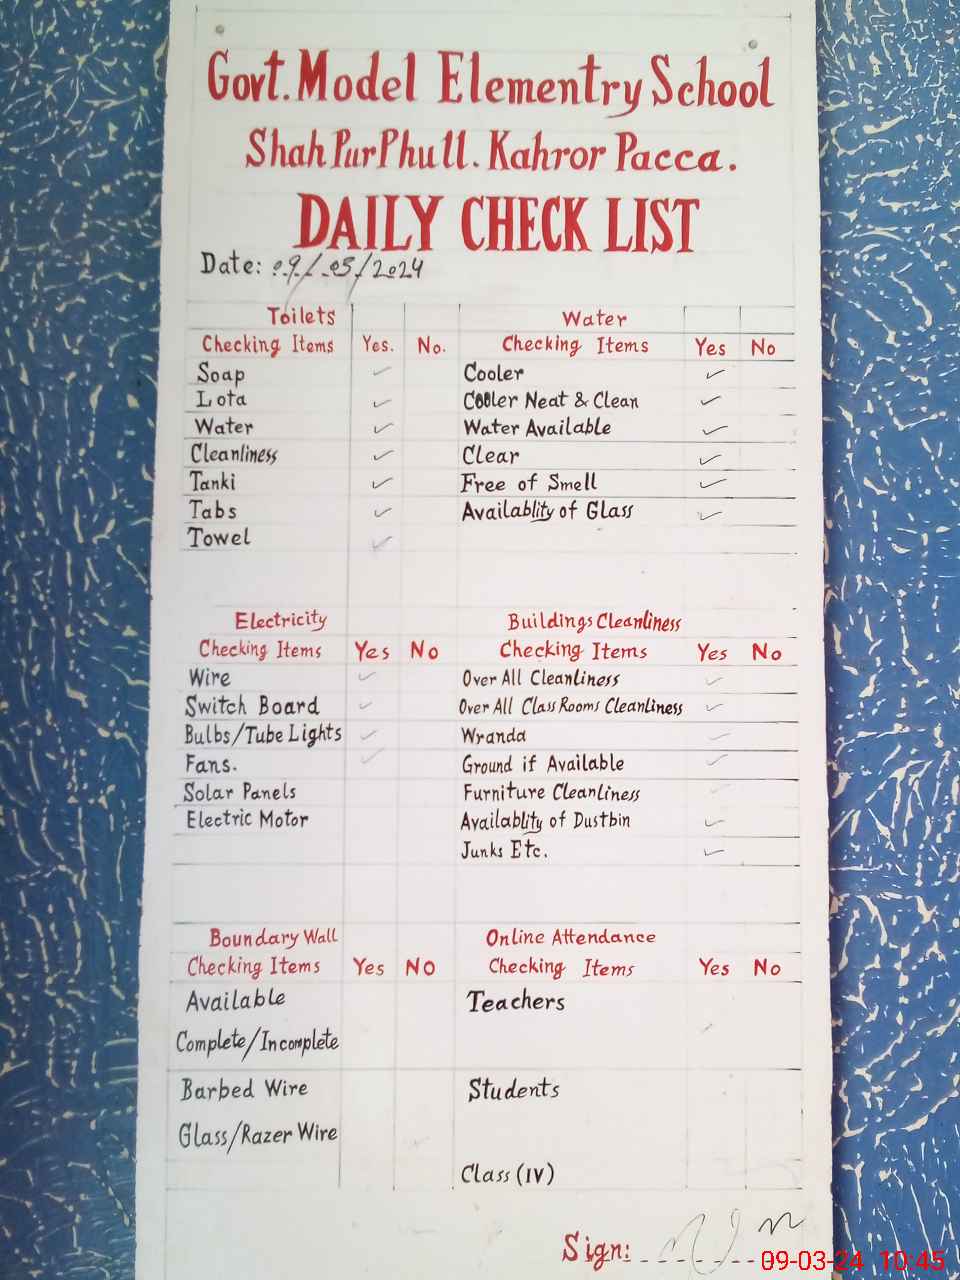 Govt. Model Elementry School
Shah Pur Phull. Kahror Pacca.
DAILY CHECK LIST
Date: 09/03/2024
Toilets Water
Checking Items Yes. No. Checking Items Yes No
Soap ✓ Cooler ✓
Lota ✓ Cooler Neat & Clean ✓
Water ✓ Water Available ✓
Cleanliness ✓ Clear ✓
Tanki ✓ Free of Smell ✓
Tabs ✓ Availablity of Glass ✓
Towel ✓
Electricity Buildings Cleanliness
Checking Items Yes No Checking Items Yes No
Wire ✓ Over All Cleanliness ✓
Switch Board ✓ Over All Class Rooms Cleanliness ✓
Bulbs/Tube Lights ✓ Wranda ✓
Fans. ✓ Ground if Available ✓
Solar Panels Furniture Cleanliness ✓
Electric Motor Availablity of Dustbin ✓
Junks Etc. ✓
Boundary Wall Online Attendance
Checking Items Yes No Checking Items Yes No
Available Teachers ✓
Complete/Incomplete
Barbed Wire Students
Glass/Razer Wire
Class (IV)
Sign:
09-03-24 10:45